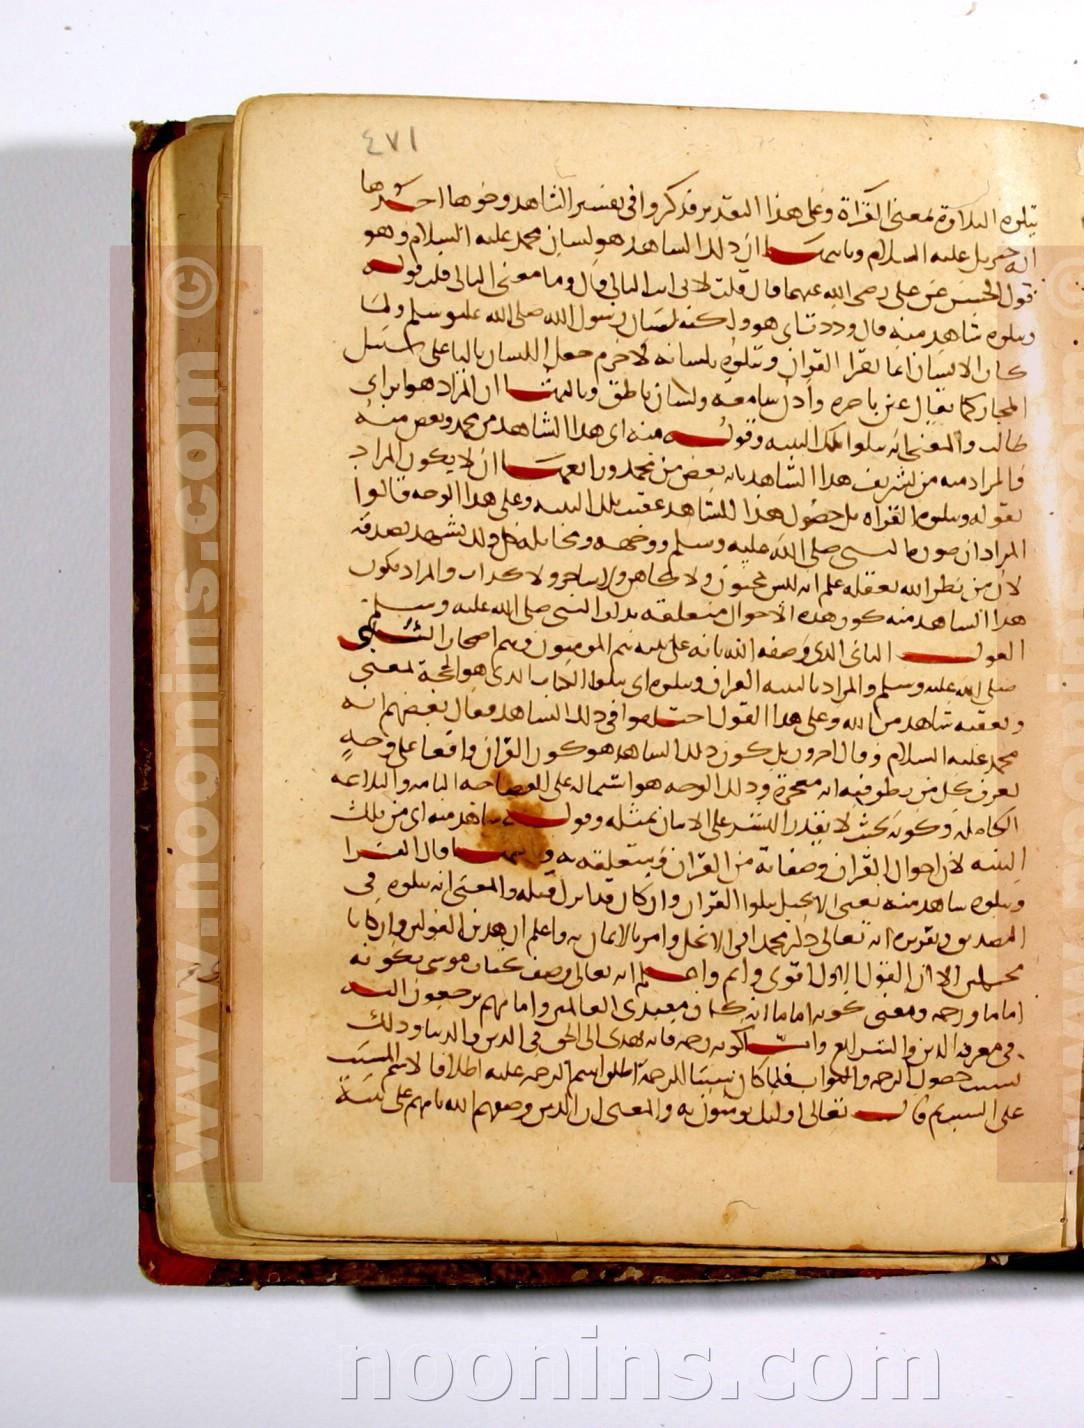 ٤٧١
يتلوه التلاوة بمعنى القرآة وعلى هذا التقدير فذكروا في تفسير الشاهد وجوها احدها
انه جبريل عليه السلام وثانيها ان ذلك الشاهد هو لسان محمد عليه السلام وهو
قول الحسن عن علي رضي الله عنهما قال قلت لابي انت التالي قال وما معنى التالي قلت قوله
ويتلوه شاهد منه قال وددت اني هو ولكنه لسان رسول الله صلى الله عليه وسلم ولما
كان الانسان انما يقرا القران ويتلوه بلسانه لا جرم جعل اللسان تاليا على سبيل
المجاز كما يقال عين باصره واذن سامعه ولسان ناطق وثالثها ان المراد هو ابن ابي
طالب والمعنى انه يتلوا تلك البينه وقوله منه اي هذا الشاهد من محمد وبعض منه
فالمراد منه تشريف هذا الشاهد بانه بعض من محمد ورابعها ان لا يكون المراد
بقوله ويتلوه القراه بل حصول هذا الشاهد عقيب تلك البينه وعلى هذا الوجه قالوا
المراد ان صورة النبي صلى الله عليه وسلم ووجهه ومخايله كل ذلك يشهد بصدقه
لان من نظر اليه بعقله علم انه ليس بمجنون ولا كاهن ولا ساحر ولا كذاب والمراد بكون
هذا الشاهد منه كون هذه الاحوال متعلقه بذات النبي صلى الله عليه وسلم
القول الثاني الذي وصفه الله بانه على بينه هم المومنون وهم اصحاب النبي
صلى الله عليه وسلم والمراد بالبينه القران ويتلوه اي يتلوا الكتاب الذي هو الحجة بمعنى
ويعقبه شاهد من الله وعلى هذا القول اختلفوا في ذلك الشاهد فقال بعضهم انه
محمد عليه السلام وقال اخرون بل كون ذلك الشاهد هو كون القران واقعا على وجه
يعرف كل من نظر فيه انه معجزة وذلك الوجه هو اشتماله على الفصاحه التامه والبلاغه
الكامله وكونه بحيث لا يقدر البشر على الاتيان بمثله وقوله شاهد منه اي من تلك
البينه لان احوال القران وصفاته من القران متعلقه به وثالثها قال الفرا
ويتلوه شاهد منه يعني الانجيل يتلوا القران وان كان قد انزل قبله والمعنى انه يتلوه في
التصديق وتقريره انه تعالى ذكر محمدا في الانجيل وامر بالايمان به واعلم ان هذين القولين وان كانا
محتملين الا ان القول الاول اقوى واتم واعلم انه تعالى وصف كتاب موسى بكونه
اماما ورحمه ومعنى كونه اماما انه كان مقتدى العالمين واماما لهم يرجعون اليه
في معرفه الدين والشرايع واما كونه رحمه فانه يهدى الى الحق في الدين والدنيا وذلك
سبب حصول الرحمه والثواب فلما كان سببا للرحمة اطلق اسم الرحمه عليه اطلاقا لاسم المسبب
على السبب ثم قال تعالى اوليك يومنون به والمعنى ان الذين وصفهم الله بانهم على بينة
www.noonins.com ©
noonins.com